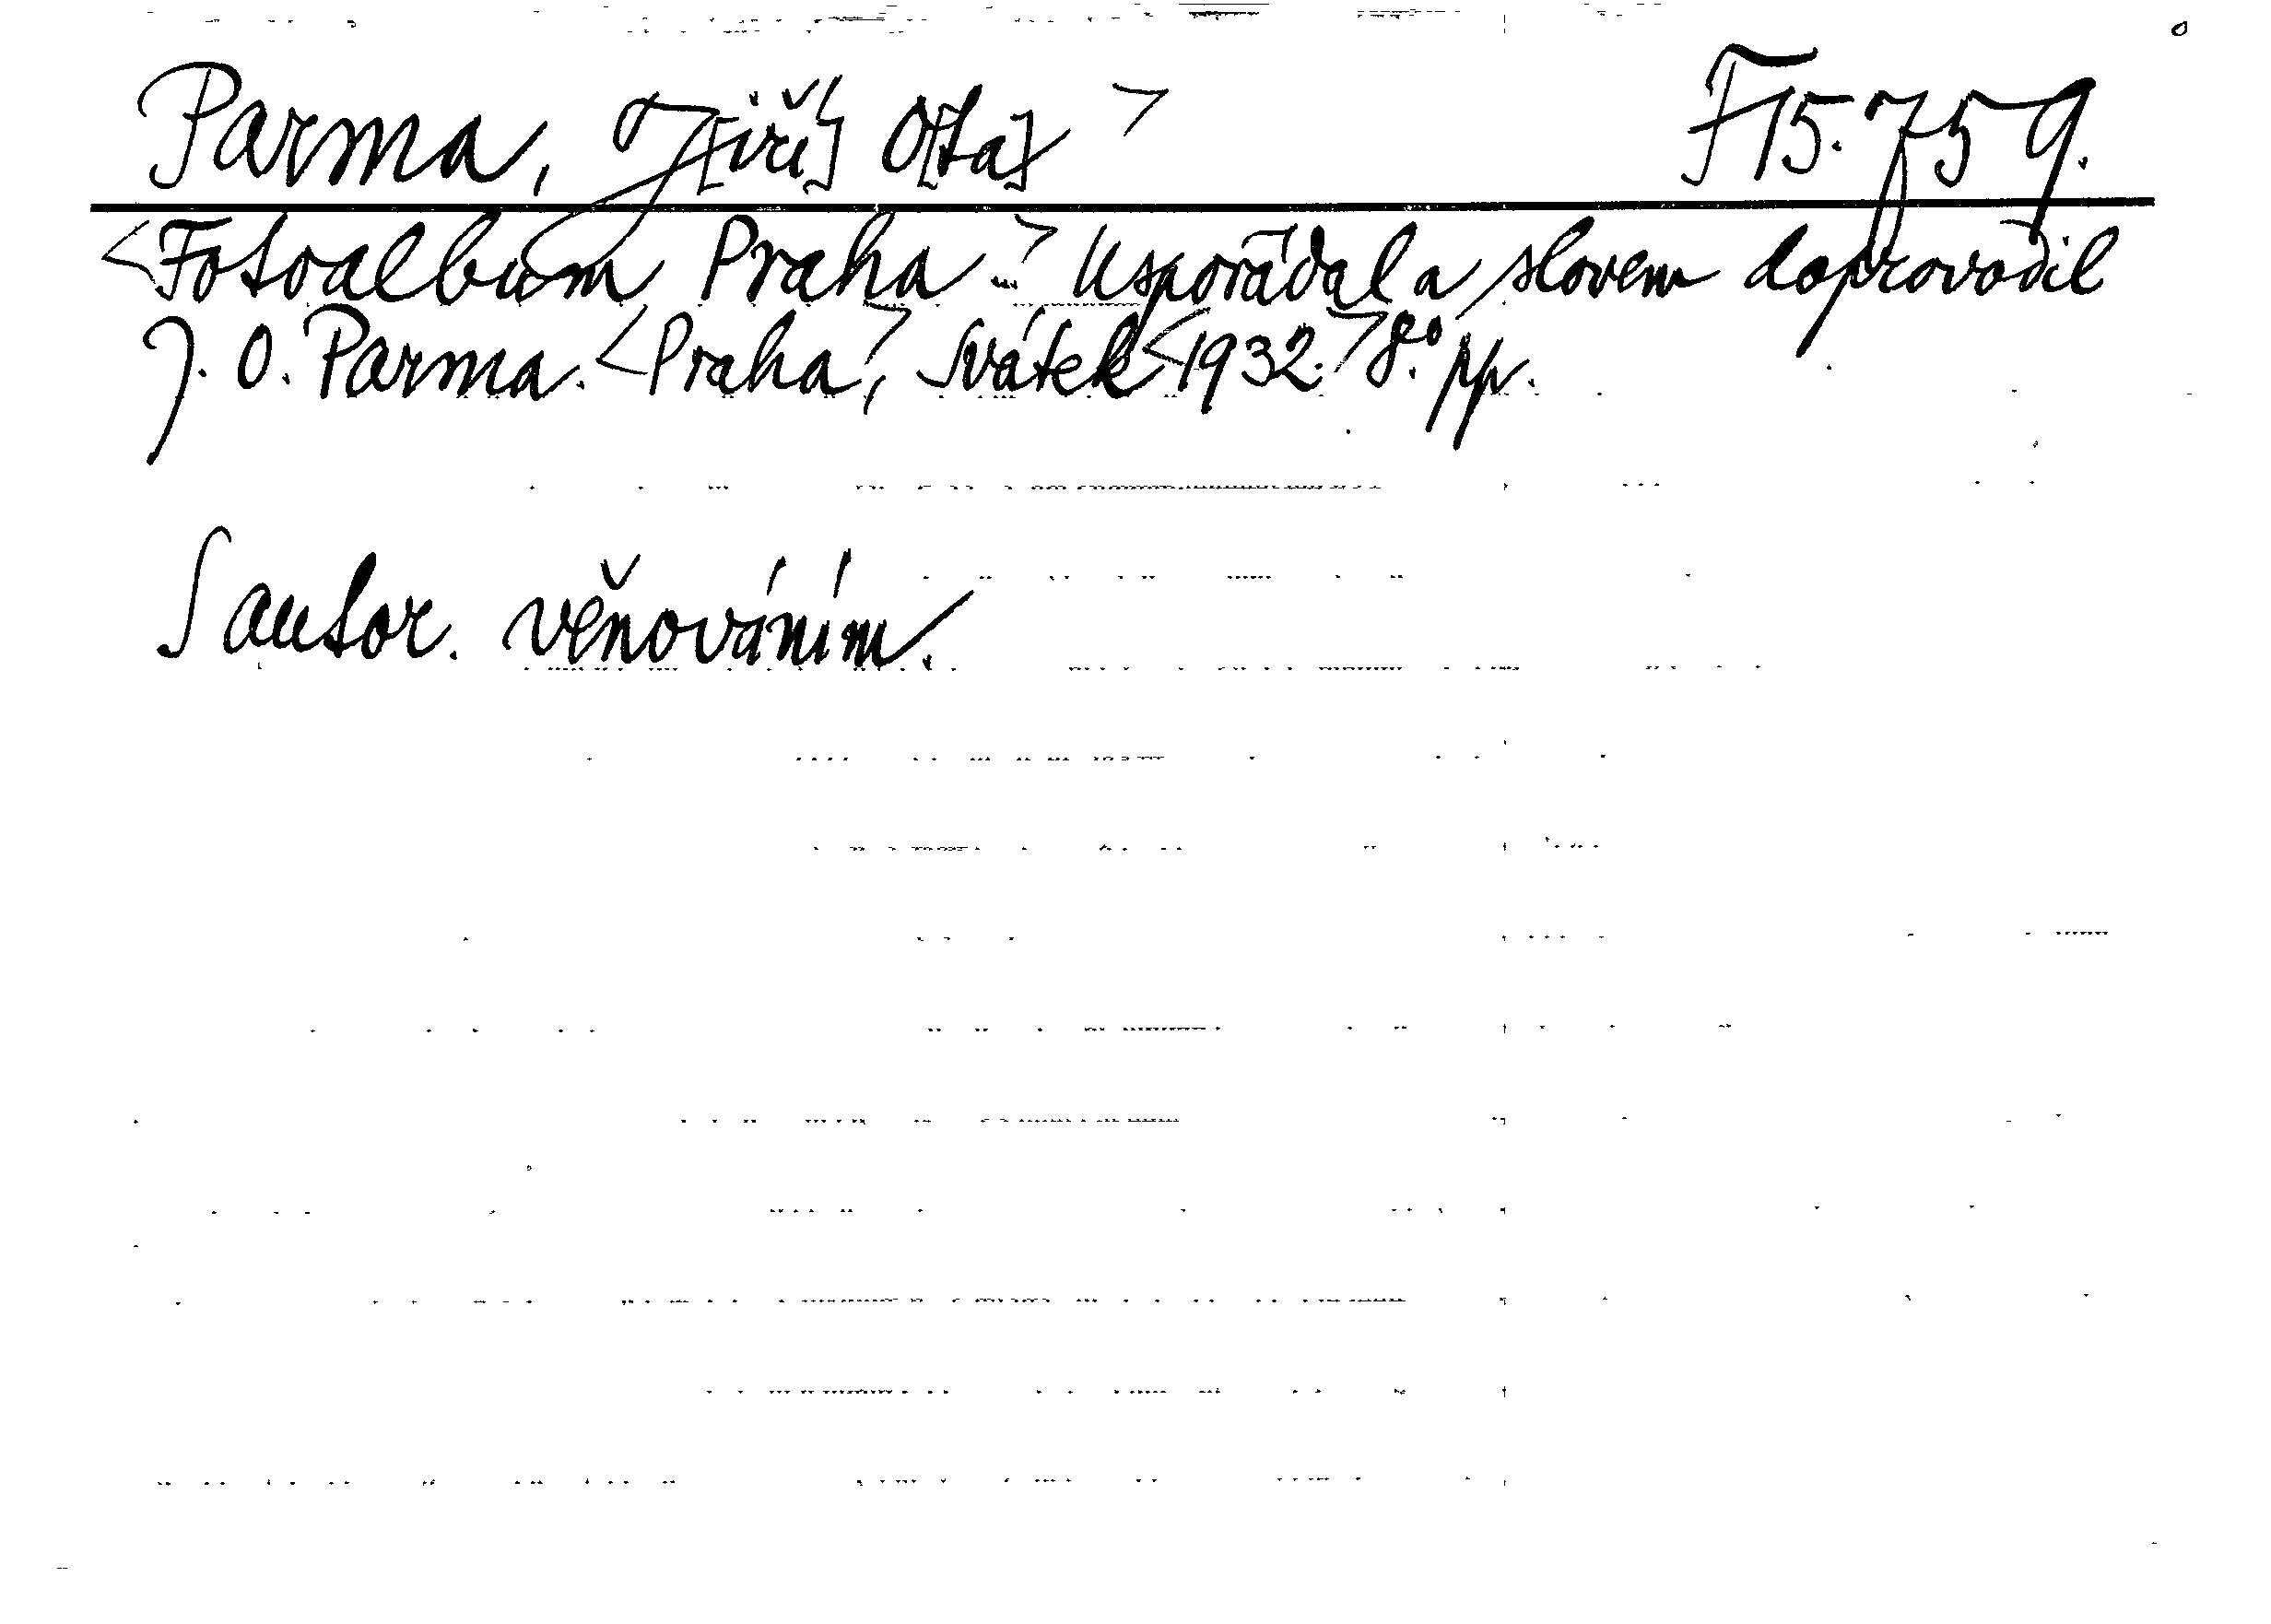 Parma, J[iří] O[ta] > F 15.759.
<Fotoalbum Praha...> Uspořádal a slovem doprovodil
J. O. Parma. <Praha>, Svátek <1932.> 8.° pp.
S autor. věnováním.